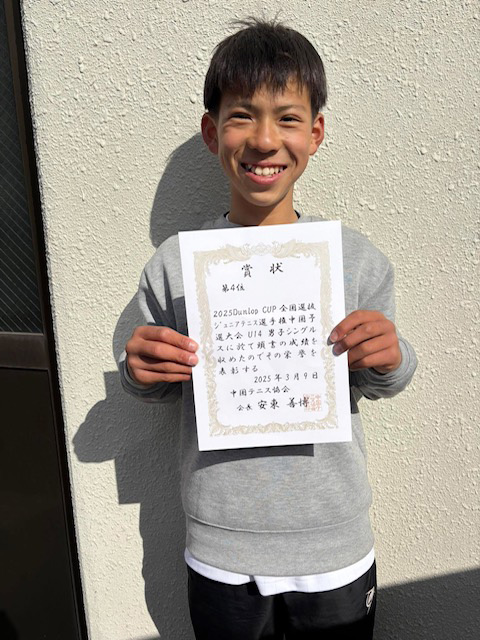 賞状
第4位
2025Dunlop CUP 全国選抜
ジュニアテニス選手権中国予
選大会 U14 男子シングル
スに於て頭書の成績を
収めたのでその栄誉を
表彰する
2025年3月9日
中国テニス協会
会長 安東善博